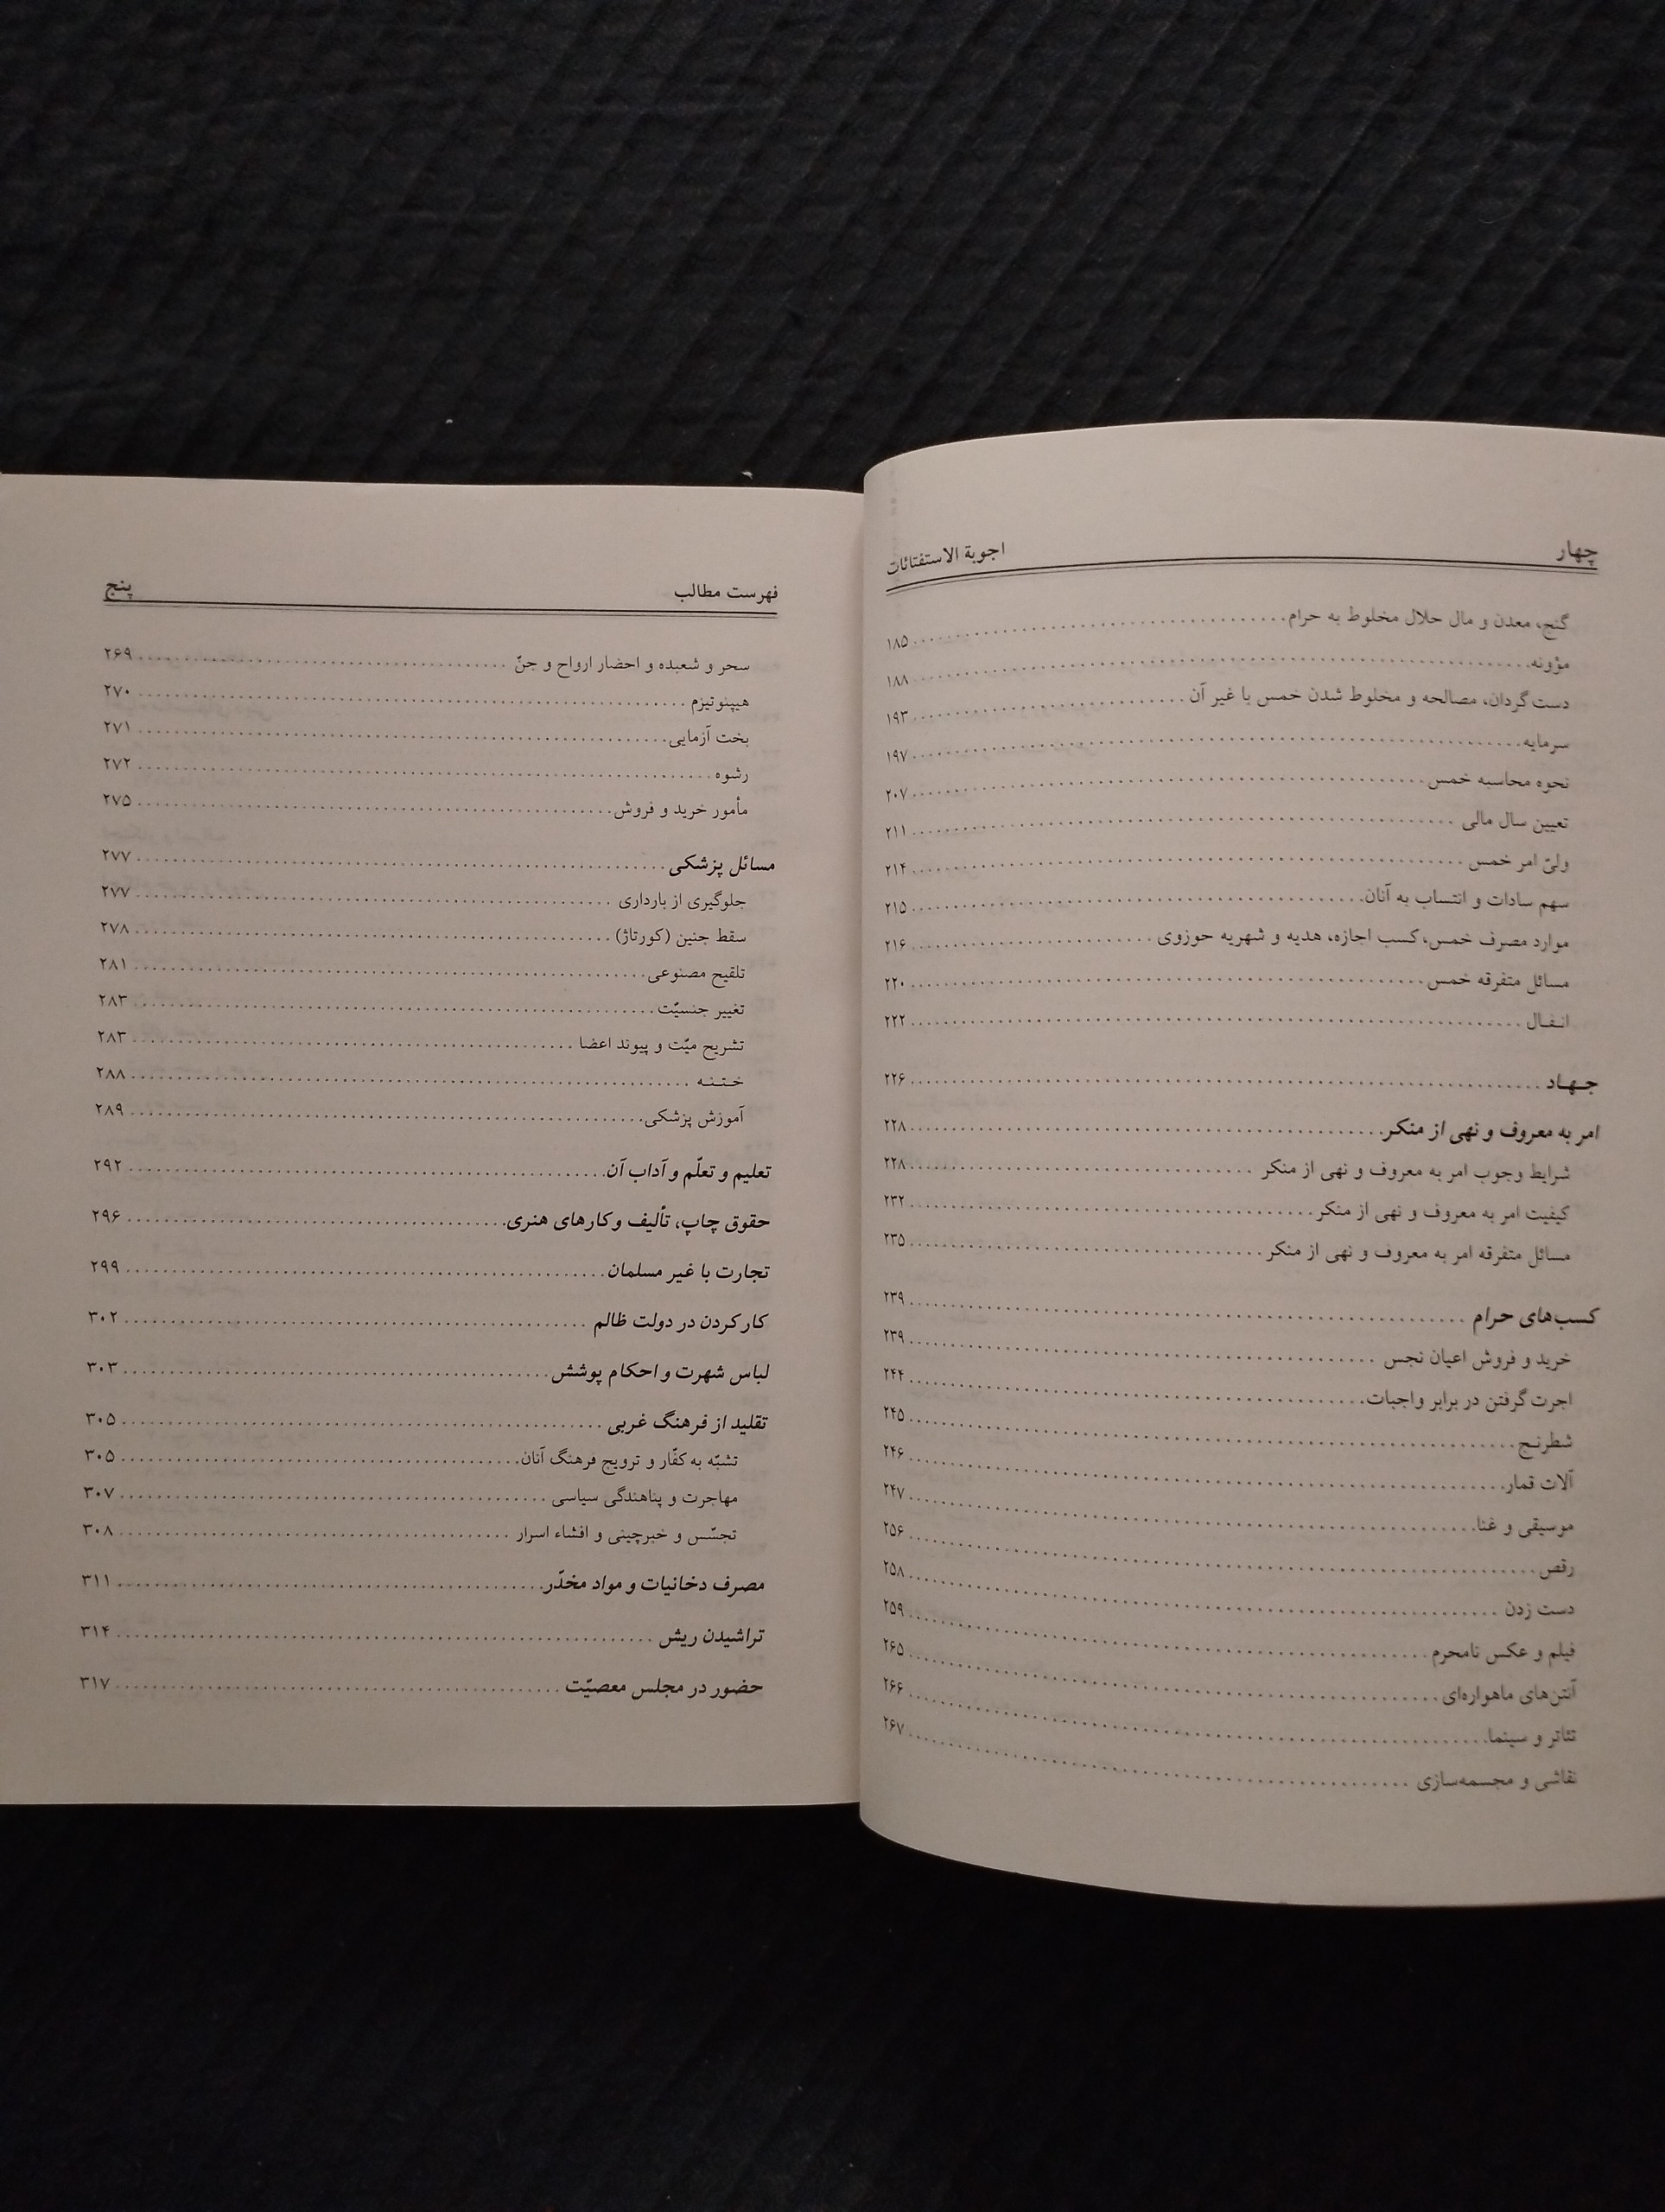 چهار
اجوبة الاستفتائات
گنج، معدن و مال حلال مخلوط به حرام ........ ۱۸۵
مؤونه ........ ۱۸۸
دست‌گردان، مصالحه و مخلوط شدن خمس با غیر آن ........ ۱۹۳
سرمایه ........ ۱۹۷
نحوه محاسبه خمس ........ ۲۰۷
تعیین سال مالی ........ ۲۱۱
ولیّ امر خمس ........ ۲۱۴
سهم سادات و انتساب به آنان ........ ۲۱۵
موارد مصرف خمس، کسب اجازه، هدیه و شهریه حوزوی ........ ۲۱۶
مسائل متفرقه خمس ........ ۲۲۰
انـفـال ........ ۲۲۲
جـهـاد ........ ۲۲۶
امر به معروف و نهی از منکر ........ ۲۲۸
شرایط وجوب امر به معروف و نهی از منکر ........ ۲۲۸
کیفیت امر به معروف و نهی از منکر ........ ۲۳۲
مسائل متفرقه امر به معروف و نهی از منکر ........ ۲۳۵
کسب‌های حرام ........ ۲۳۹
خرید و فروش اعیان نجس ........ ۲۳۹
اجرت گرفتن در برابر واجبات ........ ۲۴۴
شطرنـج ........ ۲۴۵
آلات قمار ........ ۲۴۶
موسیقی و غنا ........ ۲۴۷
رقص ........ ۲۵۶
دست زدن ........ ۲۵۸
فیلم و عکس نامحرم ........ ۲۵۹
آنتن‌های ماهواره‌ای ........ ۲۶۵
تئاتر و سینما ........ ۲۶۶
نقاشی و مجسمه‌سازی ........ ۲۶۷
فهرست مطالب
پنج
سحر و شعبده و احضار ارواح و جنّ ........ ۲۶۹
هیپنوتیزم ........ ۲۷۰
بخت آزمایی ........ ۲۷۱
رشوه ........ ۲۷۲
مأمور خرید و فروش ........ ۲۷۵
مسائل پزشکی ........ ۲۷۷
جلوگیری از بارداری ........ ۲۷۷
سقط جنین (کورتاژ) ........ ۲۷۸
تلقیح مصنوعی ........ ۲۸۱
تغییر جنسیّت ........ ۲۸۳
تشریح میّت و پیوند اعضا ........ ۲۸۳
خـتـنـه ........ ۲۸۸
آموزش پزشکی ........ ۲۸۹
تعلیم و تعلّم و آداب آن ........ ۲۹۲
حقوق چاپ، تألیف و کارهای هنری ........ ۲۹۶
تجارت با غیر مسلمان ........ ۲۹۹
کار کردن در دولت ظالم ........ ۳۰۲
لباس شهرت و احکام پوشش ........ ۳۰۳
تقلید از فرهنگ غربی ........ ۳۰۵
تشبّه به کفّار و ترویج فرهنگ آنان ........ ۳۰۵
مهاجرت و پناهندگی سیاسی ........ ۳۰۷
تجسّس و خبرچینی و افشاء اسرار ........ ۳۰۸
مصرف دخانیات و مواد مخدّر ........ ۳۱۱
تراشیدن ریش ........ ۳۱۴
حضور در مجلس معصیّت ........ ۳۱۷